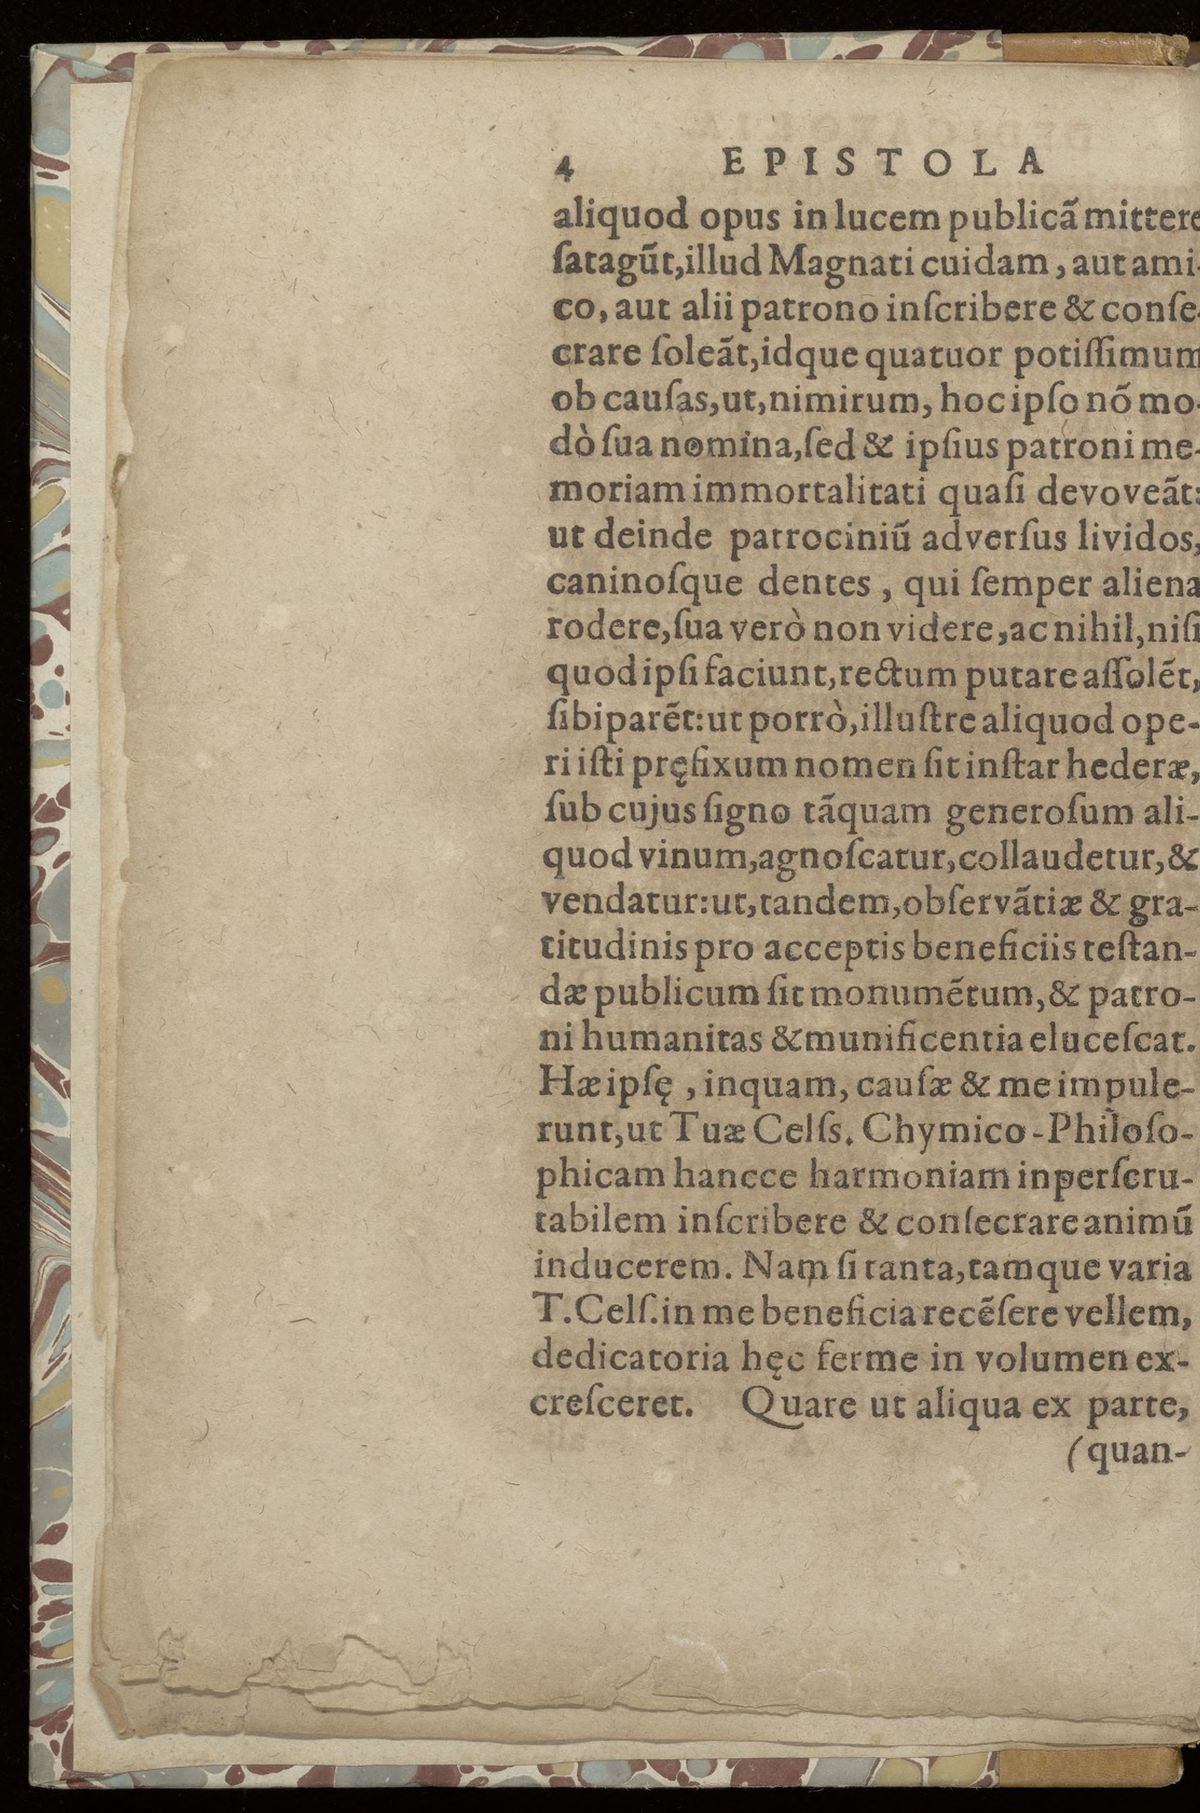 4 EPISTOLA
aliquod opus in lucem publicã mittere
ſatagũt, illud Magnati cuidam, aut ami-
co, aut alii patrono inſcribere & conſe-
crare ſoleãt, idque quatuor potiſſimum
ob cauſas, ut, nimirum, hoc ipſo nõ mo-
dò ſua nomina, ſed & ipſius patroni me-
moriam immortalitati quaſi devoveãt:
ut deinde patrociniũ adverſus lividos,
caninoſque dentes, qui ſemper aliena
rodere, ſua verò non videre, ac nihil, niſi
quod ipſi faciunt, rectum putare aſſolẽt,
ſibi parẽt: ut porrò, illuſtre aliquod ope-
ri iſti pręfixum nomen ſit inſtar hederæ,
ſub cujus ſigno tãquam generoſum ali-
quod vinum, agnoſcatur, collaudetur, &
vendatur: ut, tandem, obſervãtiæ & gra-
titudinis pro acceptis beneficiis teſtan-
dæ publicum ſit monumẽtum, & patro-
ni humanitas & munificentia eluceſcat.
Hæ ipſę, inquam, cauſæ & me impule-
runt, ut Tuæ Celſs. Chymico-Philoſo-
phicam hancce harmoniam inperſcru-
tabilem inſcribere & conſecrare animũ
inducerem. Nam ſi tanta, tamque varia
T. Celſ. in me beneficia recẽſere vellem,
dedicatoria hęc ferme in volumen ex-
creſceret. Quare ut aliqua ex parte,
(quan-